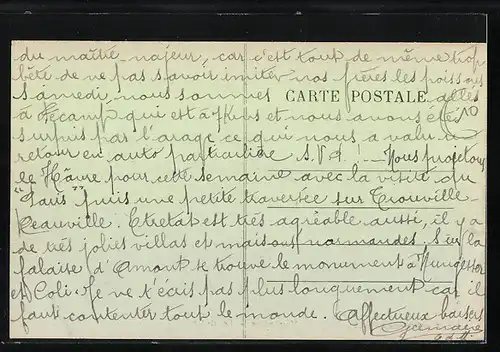 du maître-nageur, car c'est tout de même trop
bête de ne pas savoir imiter nos frères les poissons
Samedi, nous sommes allés
CARTE POSTALE
à Fécamp qui est à 17 kms et nous avons été
10
surpris par l'orage ce qui nous a valu un
retour en auto particulière s.v.p. ! — Nous projetons
le Hâvre pour cette semaine avec la visite du
"Paris" puis une petite traversée sur Trouville
Deauville. Etretat est très agréable aussi, il y a
de très jolies villas et maisons normandes. Sur la
falaise d'Amont se trouve le monument à Nungesser
et Coli. Je ne t'écris pas plus longuement car il
faut contenter tout le monde. Affectueux baisers
Germaine